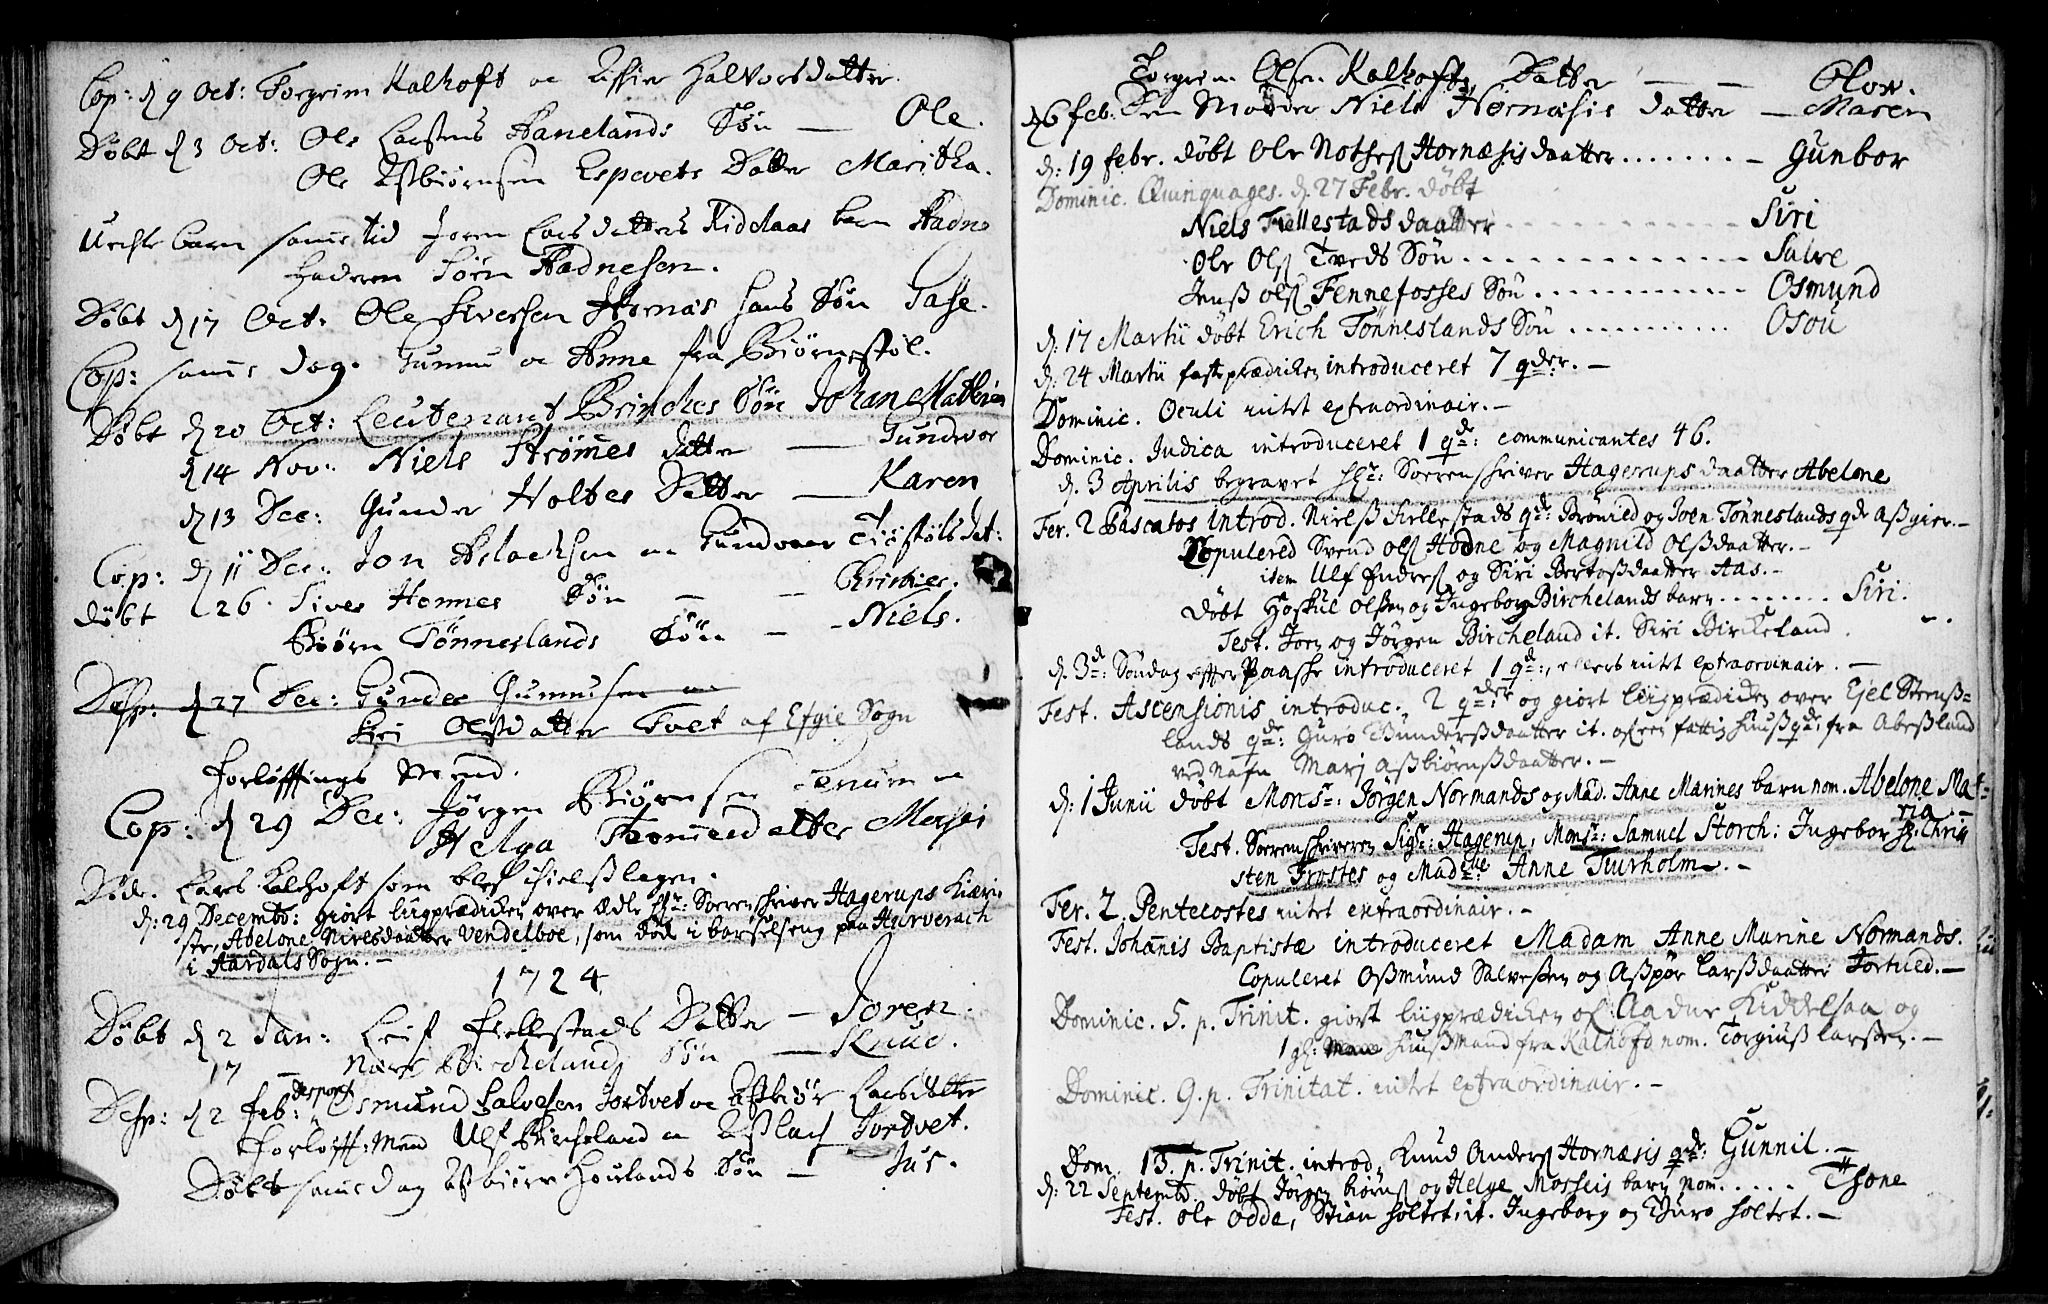 Cop: d 9 Oct: Torgrim Kalhoft oc Assier Halvorsdatter.
Døbt d 3 Oct: Ole Larsens Haanelands Søn — Ole.
Ole Asbiørnsen Espevets Datter Maritha.
Uechte barn same tid Joren Larsdatters Kiddlaas barn Aadne
faderen Sørn Aadnesen.
Døbt d 17 Oct: Ole Siversen Hornæs hans Søn Tasse.
Cop: same dag. Gunnu oc Anne fra Biørnestøl.
Døbt d 20 Oct: Leutenant Brinches Søn Johan Mathias
d 14 Nov: Niels Strømes datter — Gundvor
d 13 Dec: Gunder Holtes Datter — Karen
Cop: d 11 Dec: Jon Aslachsen oc Gundvaar Tiøstøls dat:
døbt 26. Siver Homes Søn — — Christier.
Biørn Tønneslands Søn — Niels.
Desp: d 27 Dec: Gunder Gunnusen oc
Siri Olsdatter Tvet af Efgie Sogn
forløffnings Mend.
Cop: d 29 Dec: Jørgen Biørnsen oc
Helga Tromedatter Mosei
Døde. Lars Kalhoft som blef ihielslagen.
d: 29 Decembr: giort liigprædicken over ædle Hr: Sorrenschriver Hagerups Kiæri-
ste, Abelone Nielsdaatter Vendelboe, som døde i barselseng paa Hurverach
i Aardals Sogn. —
1724
Døbt d 2 Jan: Leif Fiellestads Datter — Joren.
17 — Niels Bircheland Søn — Knud.
Desp: d 2 feb: desponst Osmund Salvesen Jortvet oc Asbiør Larsdatter
forløff: Mend Ulf Bircheland oc Aslach Jortvet.
Døbt same dag Asbiørn Houlands Søn — Jus.
Torgrim Olsen Kalhofts Datter — — Olow.
d 6 feb: Niels Hornæsis datter — Maren
d: 19 febr. døbt Ole Notheß Hornæsis daatter ....... — Gunbor
Dominic. Quinquages. d. 27 Febr. døbt
Niels Fiellestads daatter ............ Siri
Ole Olß Tveds Søn ............ Salve
Jenß olß Fennefosses Søn .......... Osmund
d: 17 Martii døbt Erich Tønneslands Søn ......... Osou
d: 24 Martii fasteprædicken introduceret 7 qder. —
Dominic. Oculi intet extraordinair. —
Dominic. Judica introduceret 1 qde: communicantes 46.
d. 3 Aprilis begravet Hr: Sorrenschriver Hagerups daatter Abelone
Fer. 2 Pascatos introd. Nielß Fiellestads qde: Brønied og Joen Tønneslands qde Aßgier. —
Copulered Svend olß Hodne og Magnild Olßdaatter. —
item Ulf Enderß og Siri Bertoßdaatter Aas. —
Døbt Hoskul Olßen og Ingeborg Birchelands barn ........ Siri.
Test. Joen og Jørgen Bircheland it. Siri Birckeland.
d. 3de: Søndag efter Paaske introduceret 1 qde:, ellers intet extraordinair. —
Fest. Ascensionis introduc. 2 qder: og giort liigprædicken over Ejel Stenß=
lands qde: Guro Gunderßdaatter it. ofver fattig huußqde: fra Abeßland
ved Nafn Marj Aßbiørnßdaatter. —
d: 1 Junii døbt Monsr: Jørgen Normands og Mad. Anne Marines barn nom. Abelone Mat=
ria —
Test. Sorrenschriveren Sigr: Hagerup, Monsr: Samuel Storch: Ingebor Hr. Chri
sten Frostes og Madelle: Anne Tuurholm. —
Fer. 2. Pentecostes intet extraordinair. —
Fest. Johannis Baptistæ introduceret Madam Anne Marine Normands.
Copuleret Oßmund Salveßen og Aßpør larßdaatter Jortued. —
Dominic. 5. p. Trinit. giort liigprædicken of: Aadne Kiddelsaa og
1 gl: huußmand fra Kalhofd nom. Torgiuß larßen. —
Dominic. 9. p. Trinitat. intet extraordinair. —
Dom. 13. p. Trinit. introd. Knud Anderß Hornæsis qde: Gunnil. —
d: 22 Septembr. døbt Jørgen biørnß og Helge Mosseis barn nom. .... Thone
Test. Ole Odde, Stian holtet, it. Ingeborg og Guro holtet. —